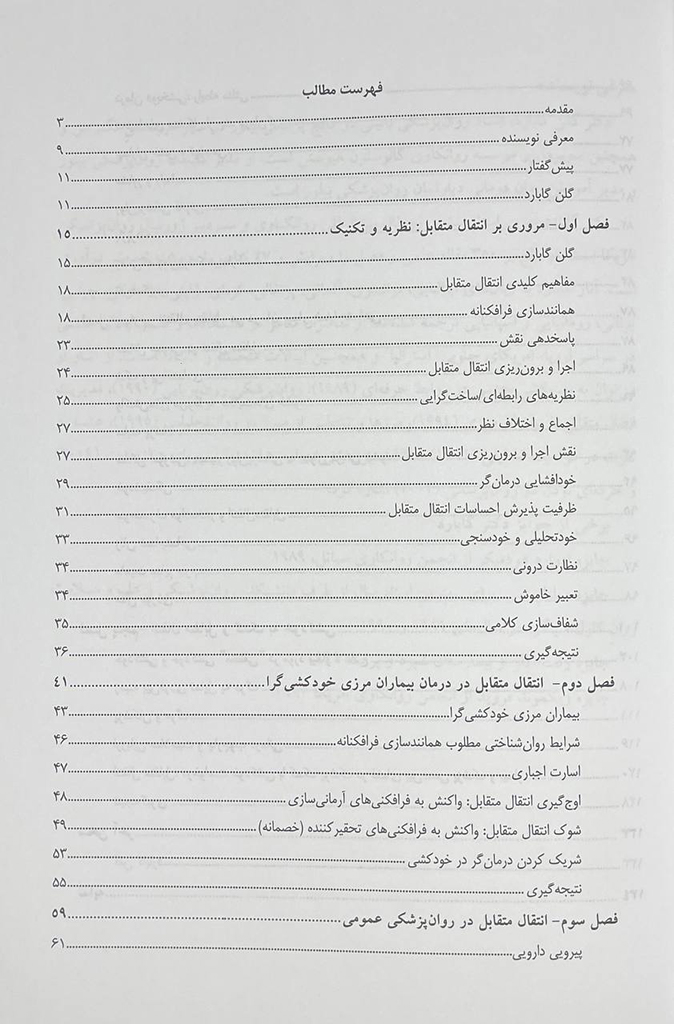 فهرست مطالب
مقدمه ... ۳
معرفی نویسنده ... ۹
پیش‌گفتار ... ۱۱
گلن گابارد ... ۱۱
فصل اول- مروری بر انتقال متقابل: نظریه و تکنیک ... ۱۵
گلن گابارد ... ۱۵
مفاهیم کلیدی انتقال متقابل ... ۱۸
همانندسازی فرافکنانه ... ۱۸
پاسخدهی نقش ... ۲۳
اجرا و برون‌ریزی انتقال متقابل ... ۲۴
نظریه‌های رابطه‌ای/ساخت‌گرایی ... ۲۵
اجماع و اختلاف نظر ... ۲۷
نقش اجرا و برون‌ریزی انتقال متقابل ... ۲۷
خودافشایی درمان‌گر ... ۲۹
ظرفیت پذیرش احساسات انتقال متقابل ... ۳۱
خودتحلیلی و خودسنجی ... ۳۳
نظارت درونی ... ۳۴
تعبیر خاموش ... ۳۴
شفاف‌سازی کلامی ... ۳۵
نتیجه‌گیری ... ۳۶
فصل دوم- انتقال متقابل در درمان بیماران مرزی خودکشی‌گرا ... ۴۱
بیماران مرزی خودکشی‌گرا ... ۴۳
شرایط روان‌شناختی مطلوب همانندسازی فرافکنانه ... ۴۶
اسارت اجباری ... ۴۷
اوج‌گیری انتقال متقابل: واکنش به فرافکنی‌های آرمانی‌سازی ... ۴۸
شوک انتقال متقابل: واکنش به فرافکنی‌های تحقیرکننده (خصمانه) ... ۴۹
شریک کردن درمان‌گر در خودکشی ... ۵۳
نتیجه‌گیری ... ۵۵
فصل سوم- انتقال متقابل در روان‌پزشکی عمومی ... ۵۹
پیرویی دارویی ... ۶۱